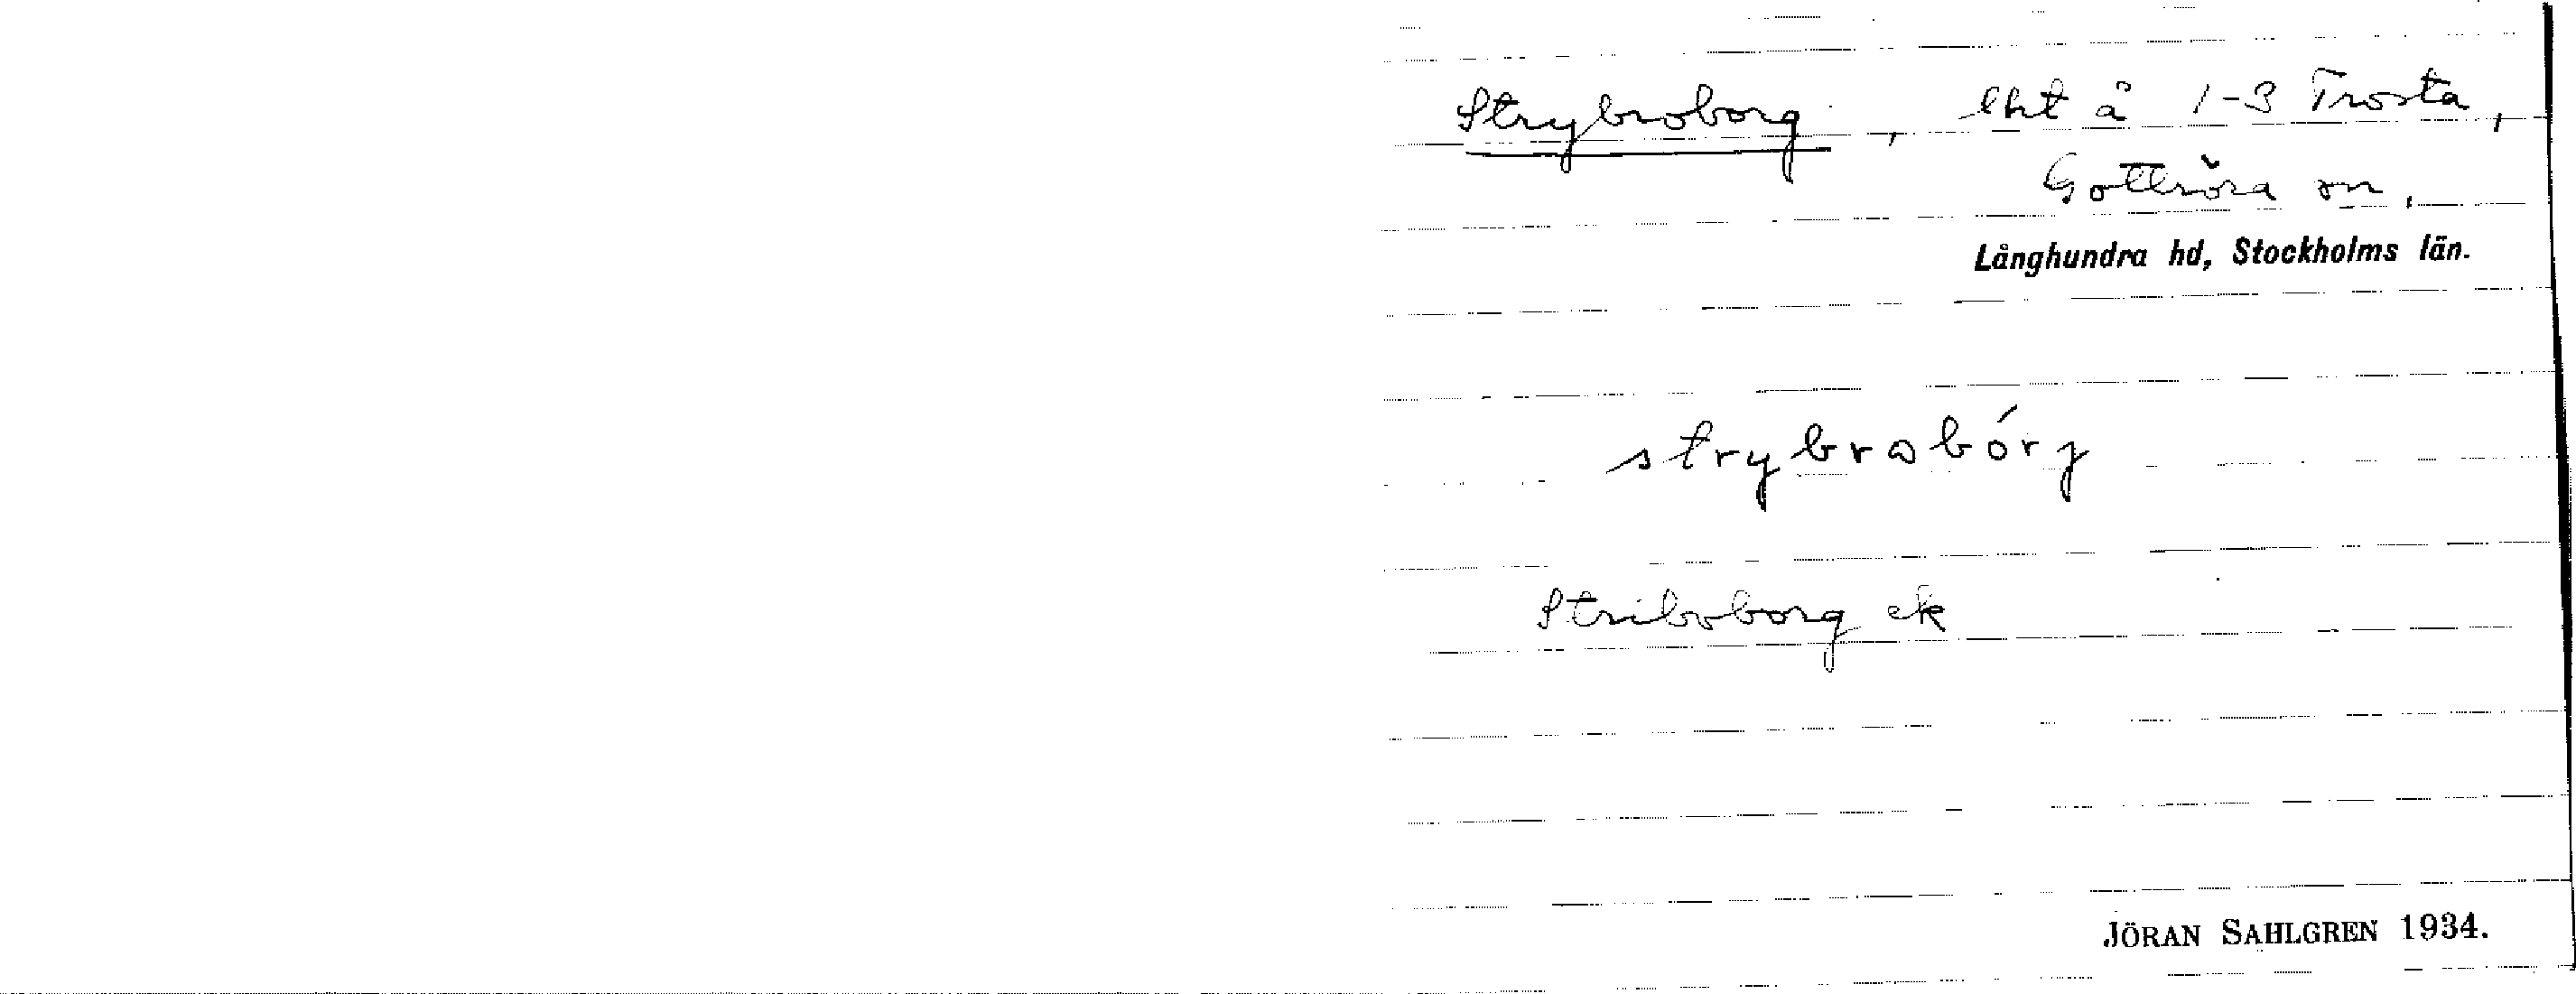 Strybroborg, lht å 1-3 Trosta,
Gottröra sn,
Långhundra hd, Stockholms län.
strybrobórg
Striboborg ek
JÖRAN SAHLGREN 1934.